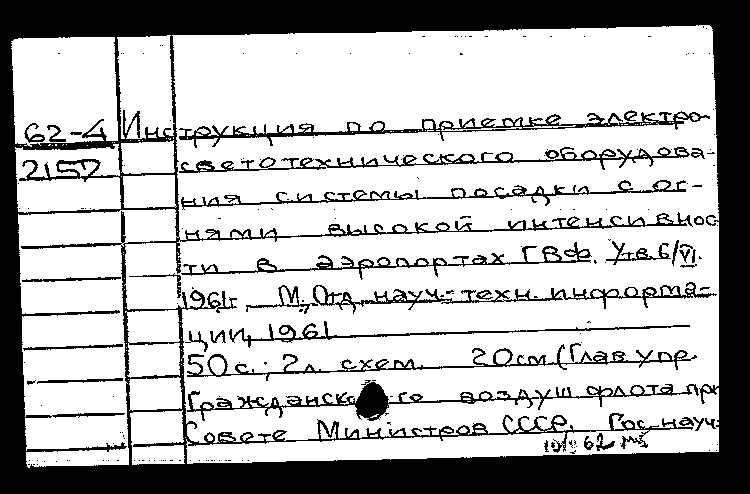 62-4 Инструкция по приемке электро-
215D светотехнического оборудова-
ния системы посадки с ог-
нями высокой интенсивнос
ти в аэропортах ГВФ. Утв. 6/VI.
1961г. М., Отд. науч.-техн. информа-
ции, 1961
50 с.; 2 л. схем. 20 см. (Глав. упр.
Гражданск го воздуш. флота при
Совете Министров СССР. Гос. науч.-
62